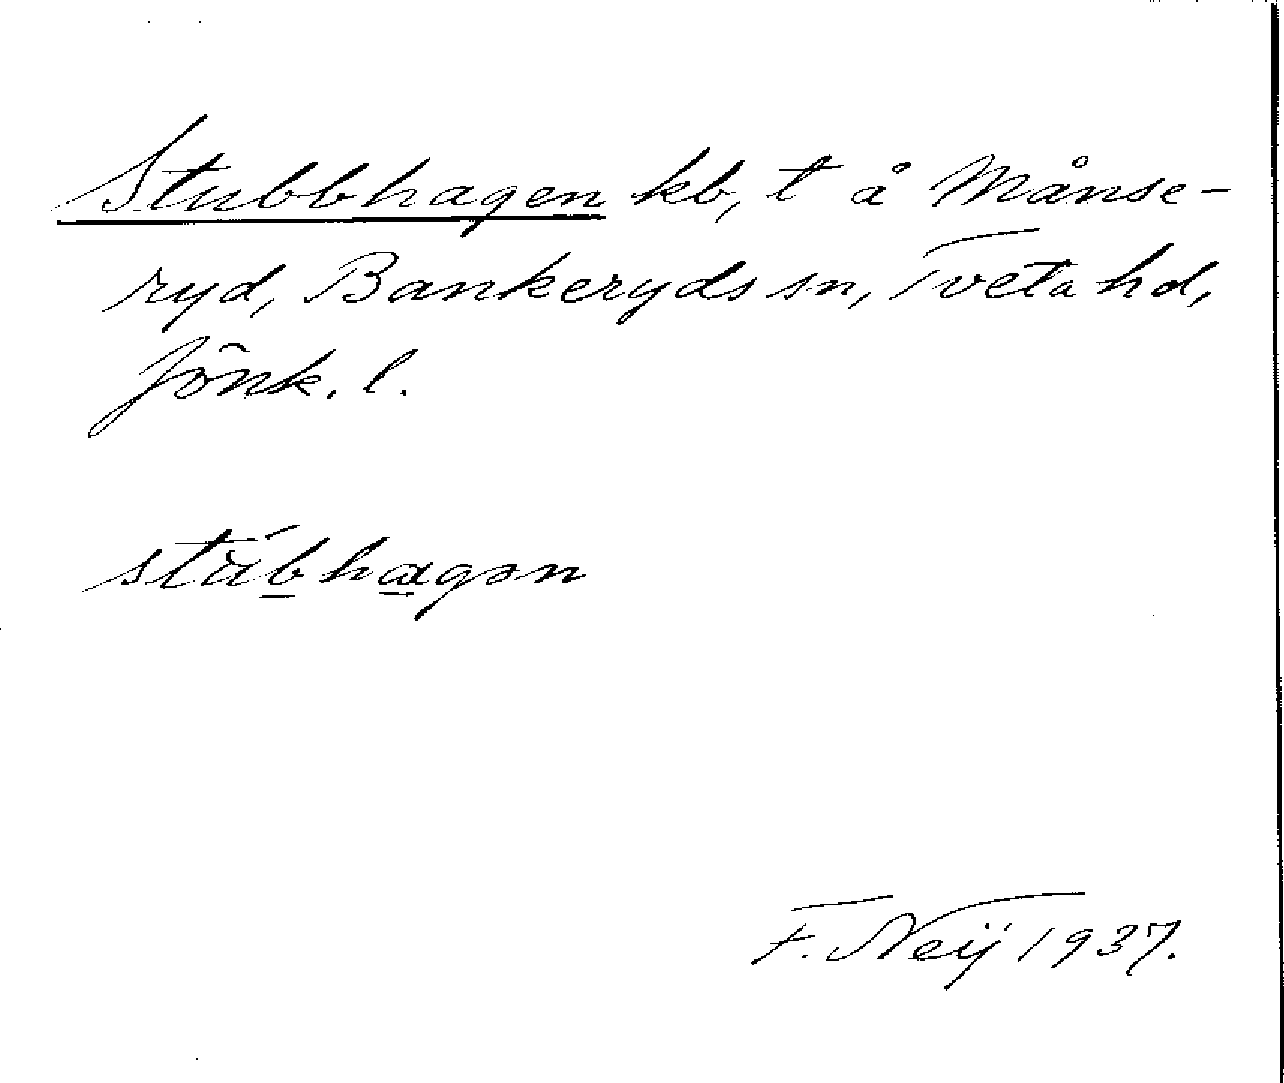 Stubbhagen kb, t å Månse-
ryd, Bankeryds sn, Tveta hd,
Jönk. l.
stúbhagən
F. Neij 1937.